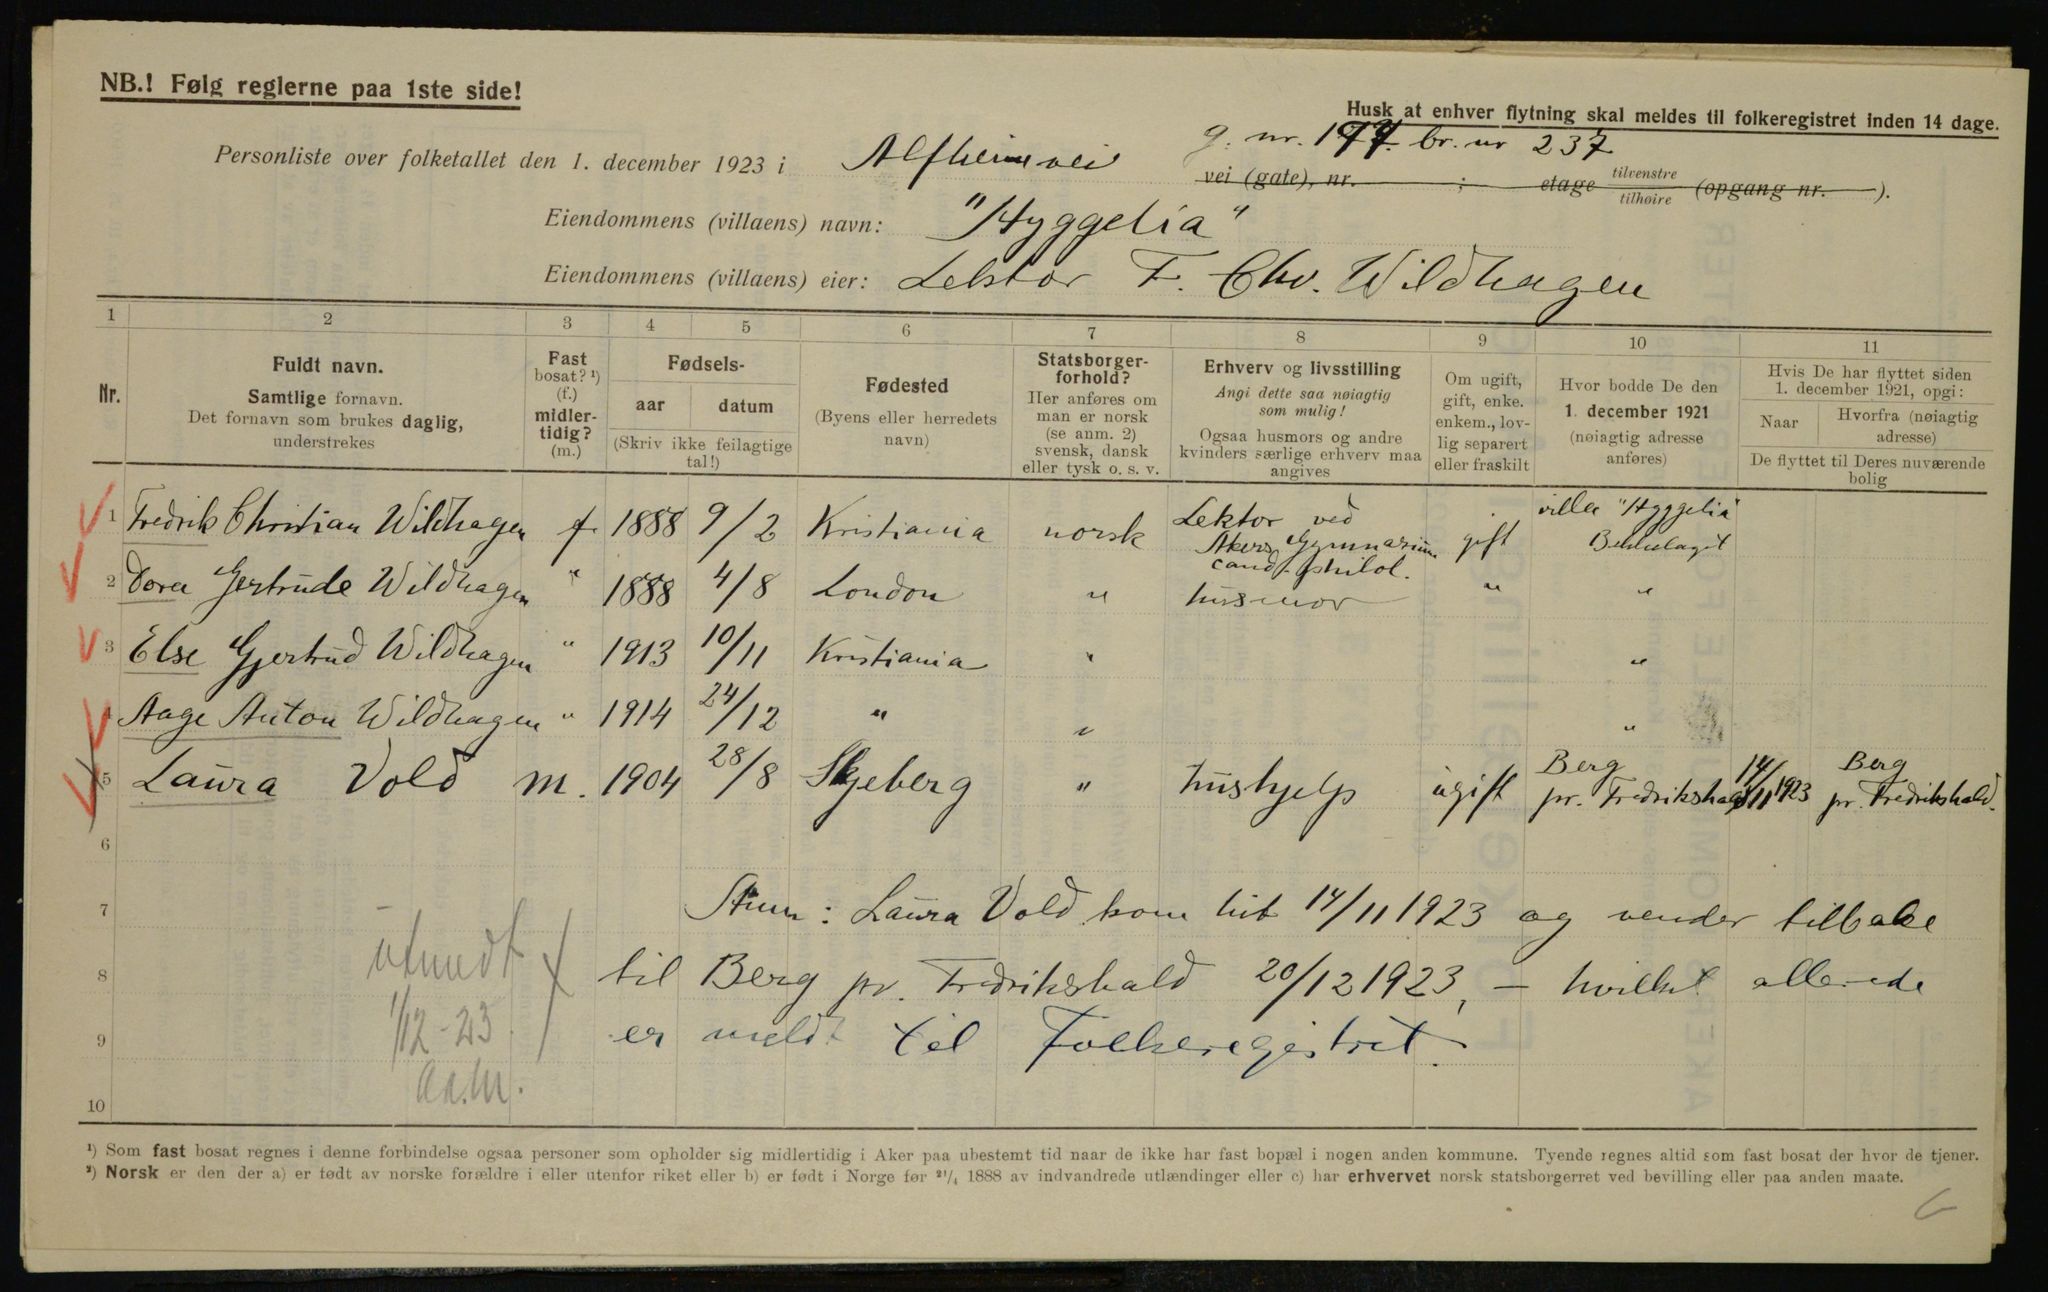 NB.! Følg reglerne paa 1ste side!
Husk at enhver flytning skal meldes til folkeregistret inden 14 dage.
Personliste over folketallet den 1. december 1923 i Alfheimvei g. nr. 177. br. nr 237
vei (gate), nr. ; etage tilvenstre tilhøire (opgang nr. ).
Eiendommens (villaens) navn: "Hyggelia"
Eiendommens (villaens) eier: Lektor F. Chr. Wildhagen
1 2 3 4 5 6 7 8 9 10 11
Nr.
Fuldt navn.
Samtlige fornavn.
Det fornavn som brukes daglig,
understrekes
Fast
bosat? ¹)
(f.)
midler-
tidig?
(m.)
Fødsels-
aar datum
(Skriv ikke feilagtige
tal!)
Fødested
(Byens eller herredets
navn)
Statsborger-
forhold?
Her anføres om
man er norsk
(se anm. 2)
svensk, dansk
eller tysk o. s. v.
Erhverv og livsstilling
Angi dette saa nøiagtig
som mulig!
Ogsaa husmors og andre
kvinders særlige erhverv maa
angives
Om ugift,
gift, enke.
enkem., lov-
lig separert
eller fraskilt
Hvor bodde De den
1. december 1921
(nøiagtig adresse
anføres)
Hvis De har flyttet siden
1. december 1921, opgi:
Naar Hvorfra (nøiagtig
adresse)
De flyttet til Deres nuværende
bolig
1 Fredrik Christian Wildhagen f. 1888 9/2 Kristiania norsk Lektor ved Akers Gymnasium cand. philol. gift villa "Hyggelia" Bekkelaget
2 Dora Gertrude Wildhagen " 1888 4/8 London " husmor " "
3 Else Gjertrud Wildhagen " 1913 10/11 Kristiania " "
4 Aage Anton Wildhagen " 1914 24/12 " " "
5 Laura Vold m. 1904 28/8 Skjeberg " hushjelp ugift Berg pr. Fredrikshald 14/11 1923 Berg pr. Fredrikshald.
6
7 Anm: Laura Vold kom hit 14/11 1923 og vender tilbake
8 til Berg pr. Fredrikshald 20/12 1923, – hvilket allerede
9 er meldt til Folkeregistret.
10
utmeldt
1/12-23
¹) Som fast bosat regnes i denne forbindelse ogsaa personer som opholder sig midlertidig i Aker paa ubestemt tid naar de ikke har fast bopæl i nogen anden kommune. Tyende regnes altid som fast bosat der hvor de tjener.
²) Norsk er den der a) er født av norske forældre i eller utenfor riket eller b) er født i Norge før ²¹/₄ 1888 av indvandrede utlændinger eller c) har erhvervet norsk statsborgerret ved bevilling eller paa anden maate.